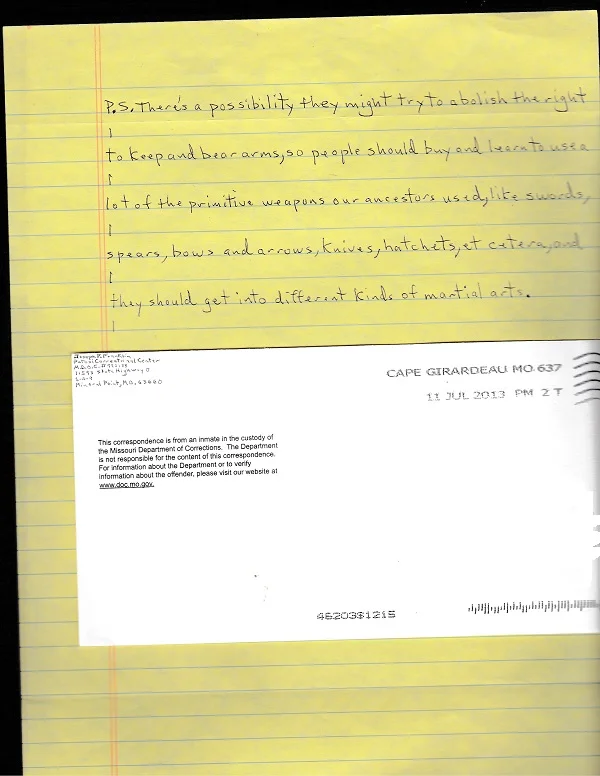 P.S. There's a possibility they might try to abolish the right
to keep and bear arms, so people should buy and learn to use a
lot of the primitive weapons our ancestors used, like swords,
spears, bows and arrows, knives, hatchets, et cetera, and
they should get into different kinds of martial arts.
Joseph P. Franklin
Potosi Correctional Center
M.D.O.C. #
11593 State Highway O
Mineral Point, MO. 63660
CAPE GIRARDEAU MO 637
11 JUL 2013 PM 2 T
This correspondence is from an inmate in the custody of
the Missouri Department of Corrections. The Department
is not responsible for the content of this correspondence.
For information about the Department or to verify
information about the offender, please visit our website at
www.doc.mo.gov.
4620381215